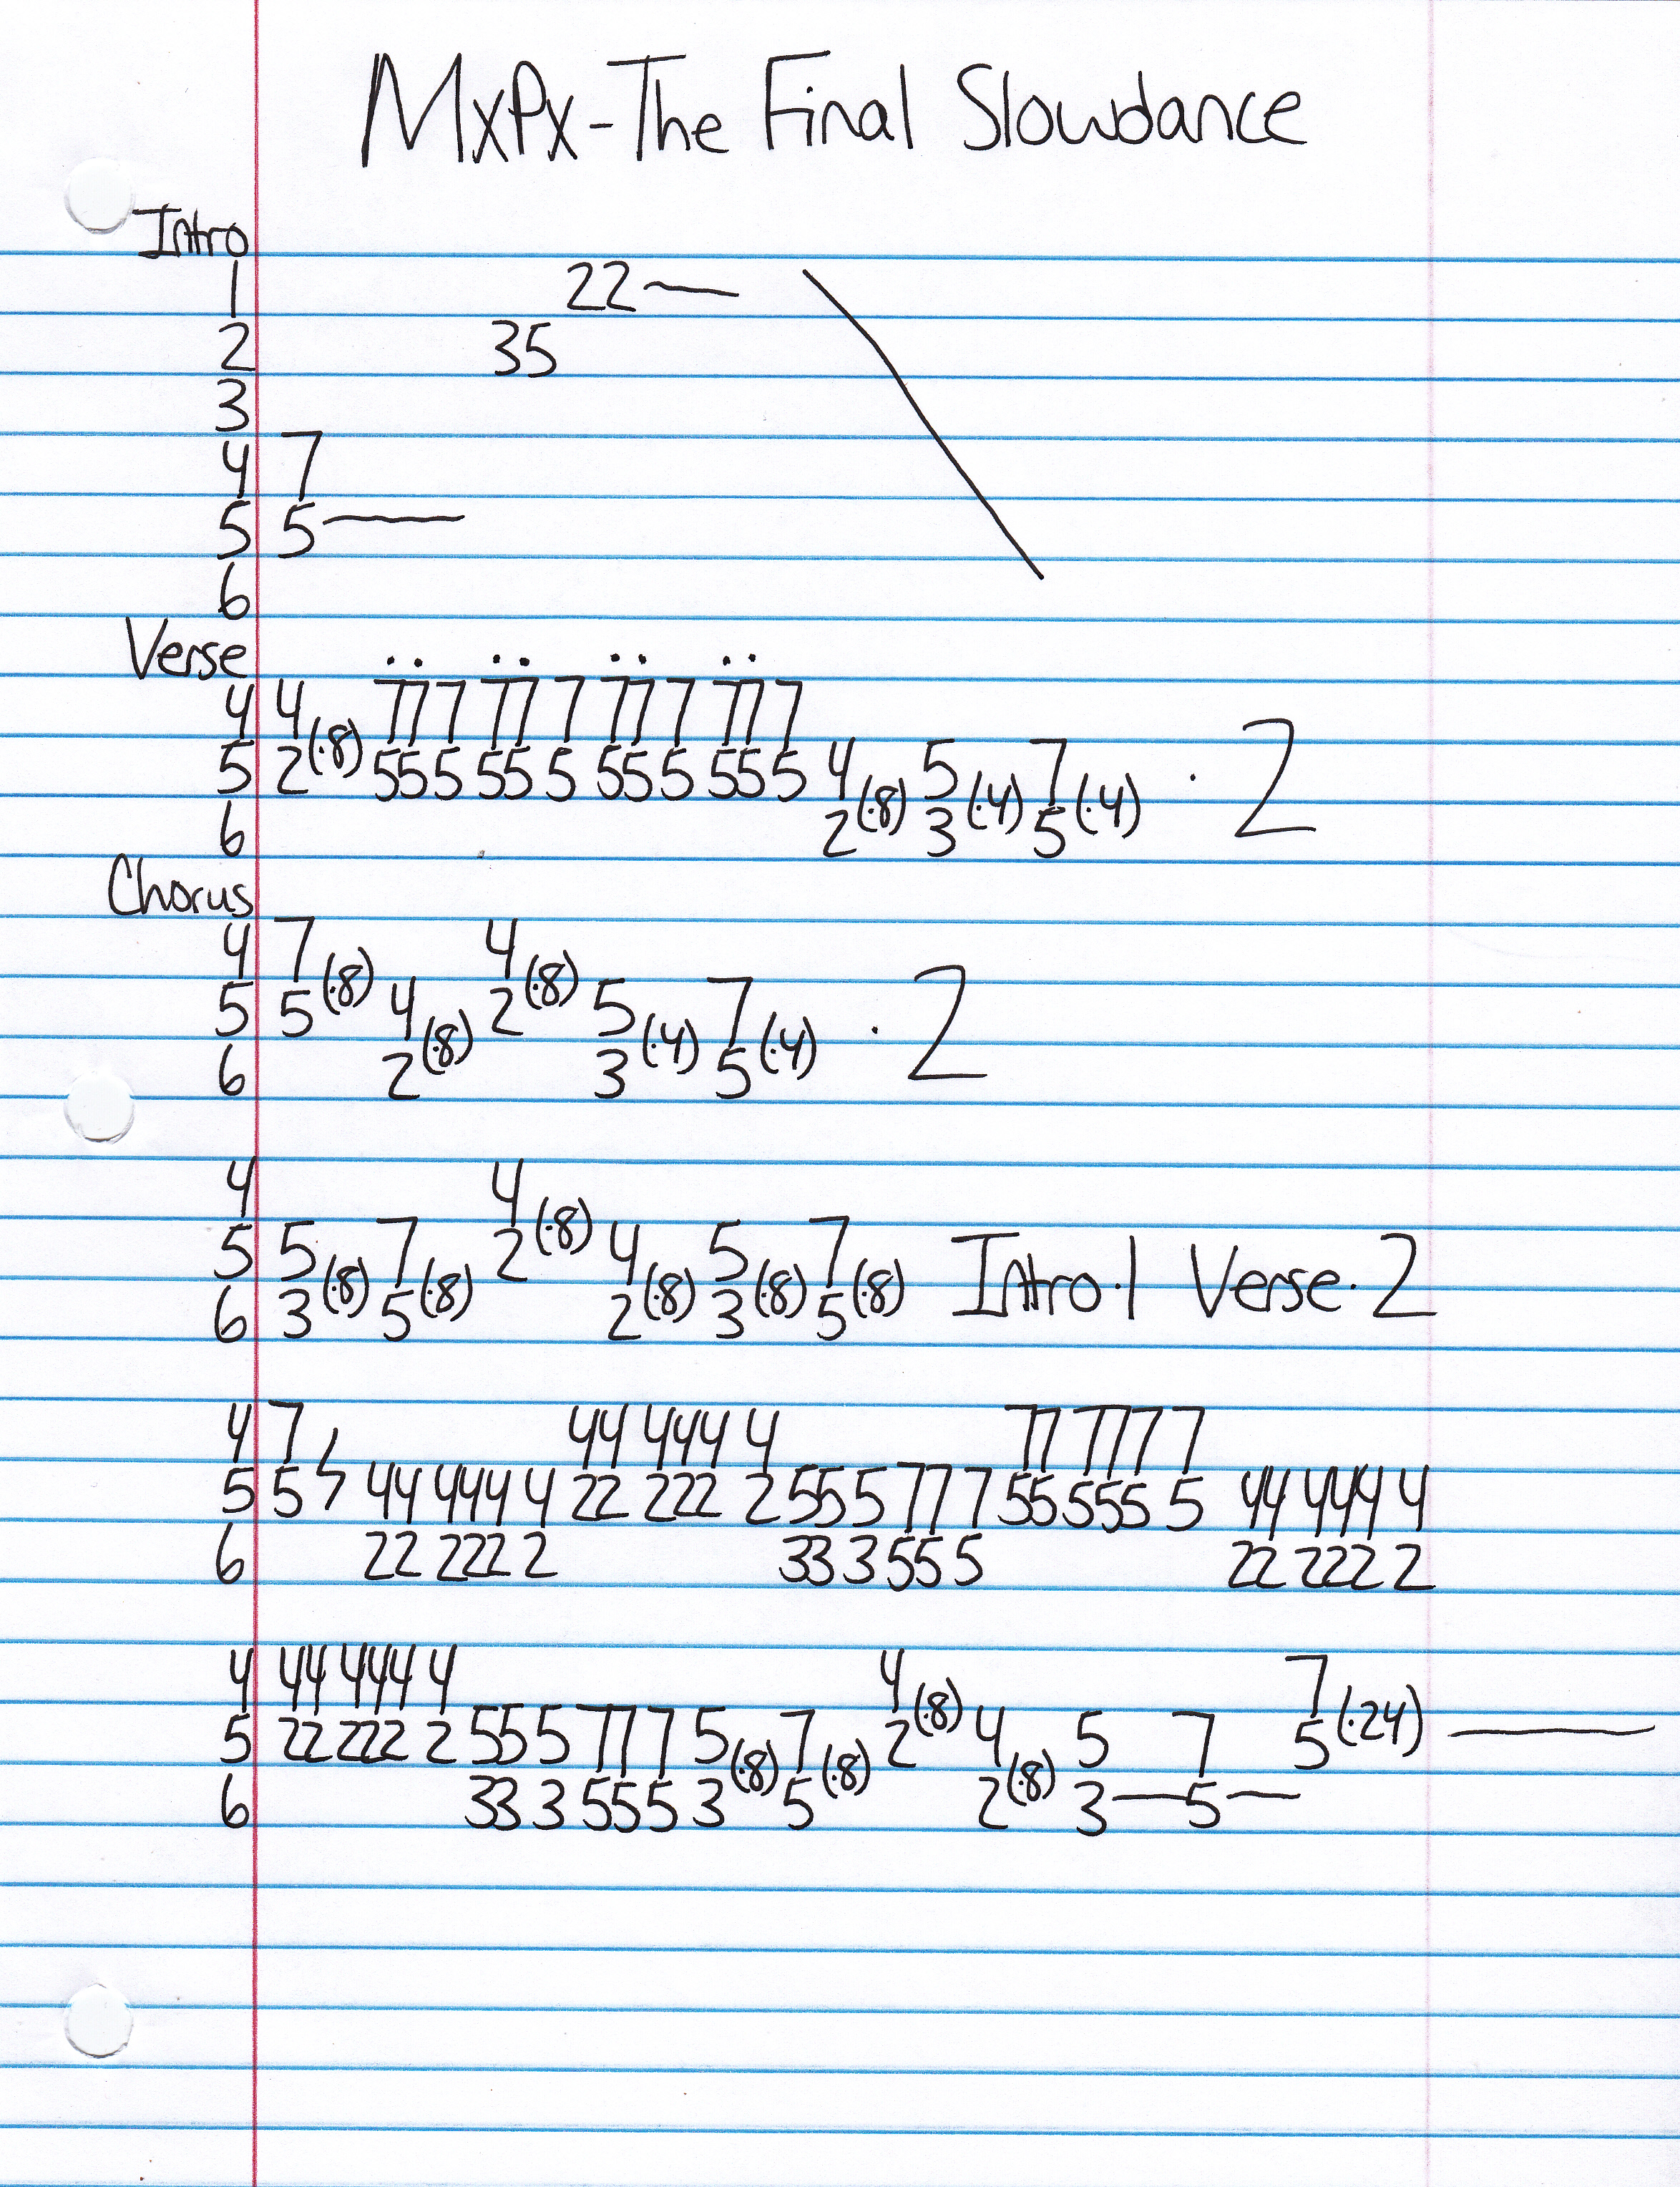 MxPx-The Final Slowdance
Intro
1 22—
2 35
3
4 7
5 5—
6
Verse
4 4 777 777 777 777
5 2(·8) 555 555 555 555 4 5 7 · 2
6 2(·8) 3(·4) 5(·4)
Chorus
4 7 4
5 5(·8) 4 2(·8) 5 7 · 2
6 2(·8) 3(·4) 5(·4)
4 4
5 5 7 2(·8) 4 5 7 Intro·1 Verse·2
6 3(·8) 5(·8) 2(·8) 3(·8) 5(·8)
4 7 44 444 4 77 777 7
5 5 44 444 4 22 222 2 55 5 77 7 55 555 5 44 444 4
6 22 222 2 33 3 55 5 22 222 2
4 44 444 4 4 7
5 22 222 2 55 5 77 7 5 7 2(·8) 4 5 7 5(·24)—
6 33 3 55 5 3(·8) 5(·8) 2(·8) 3—5—